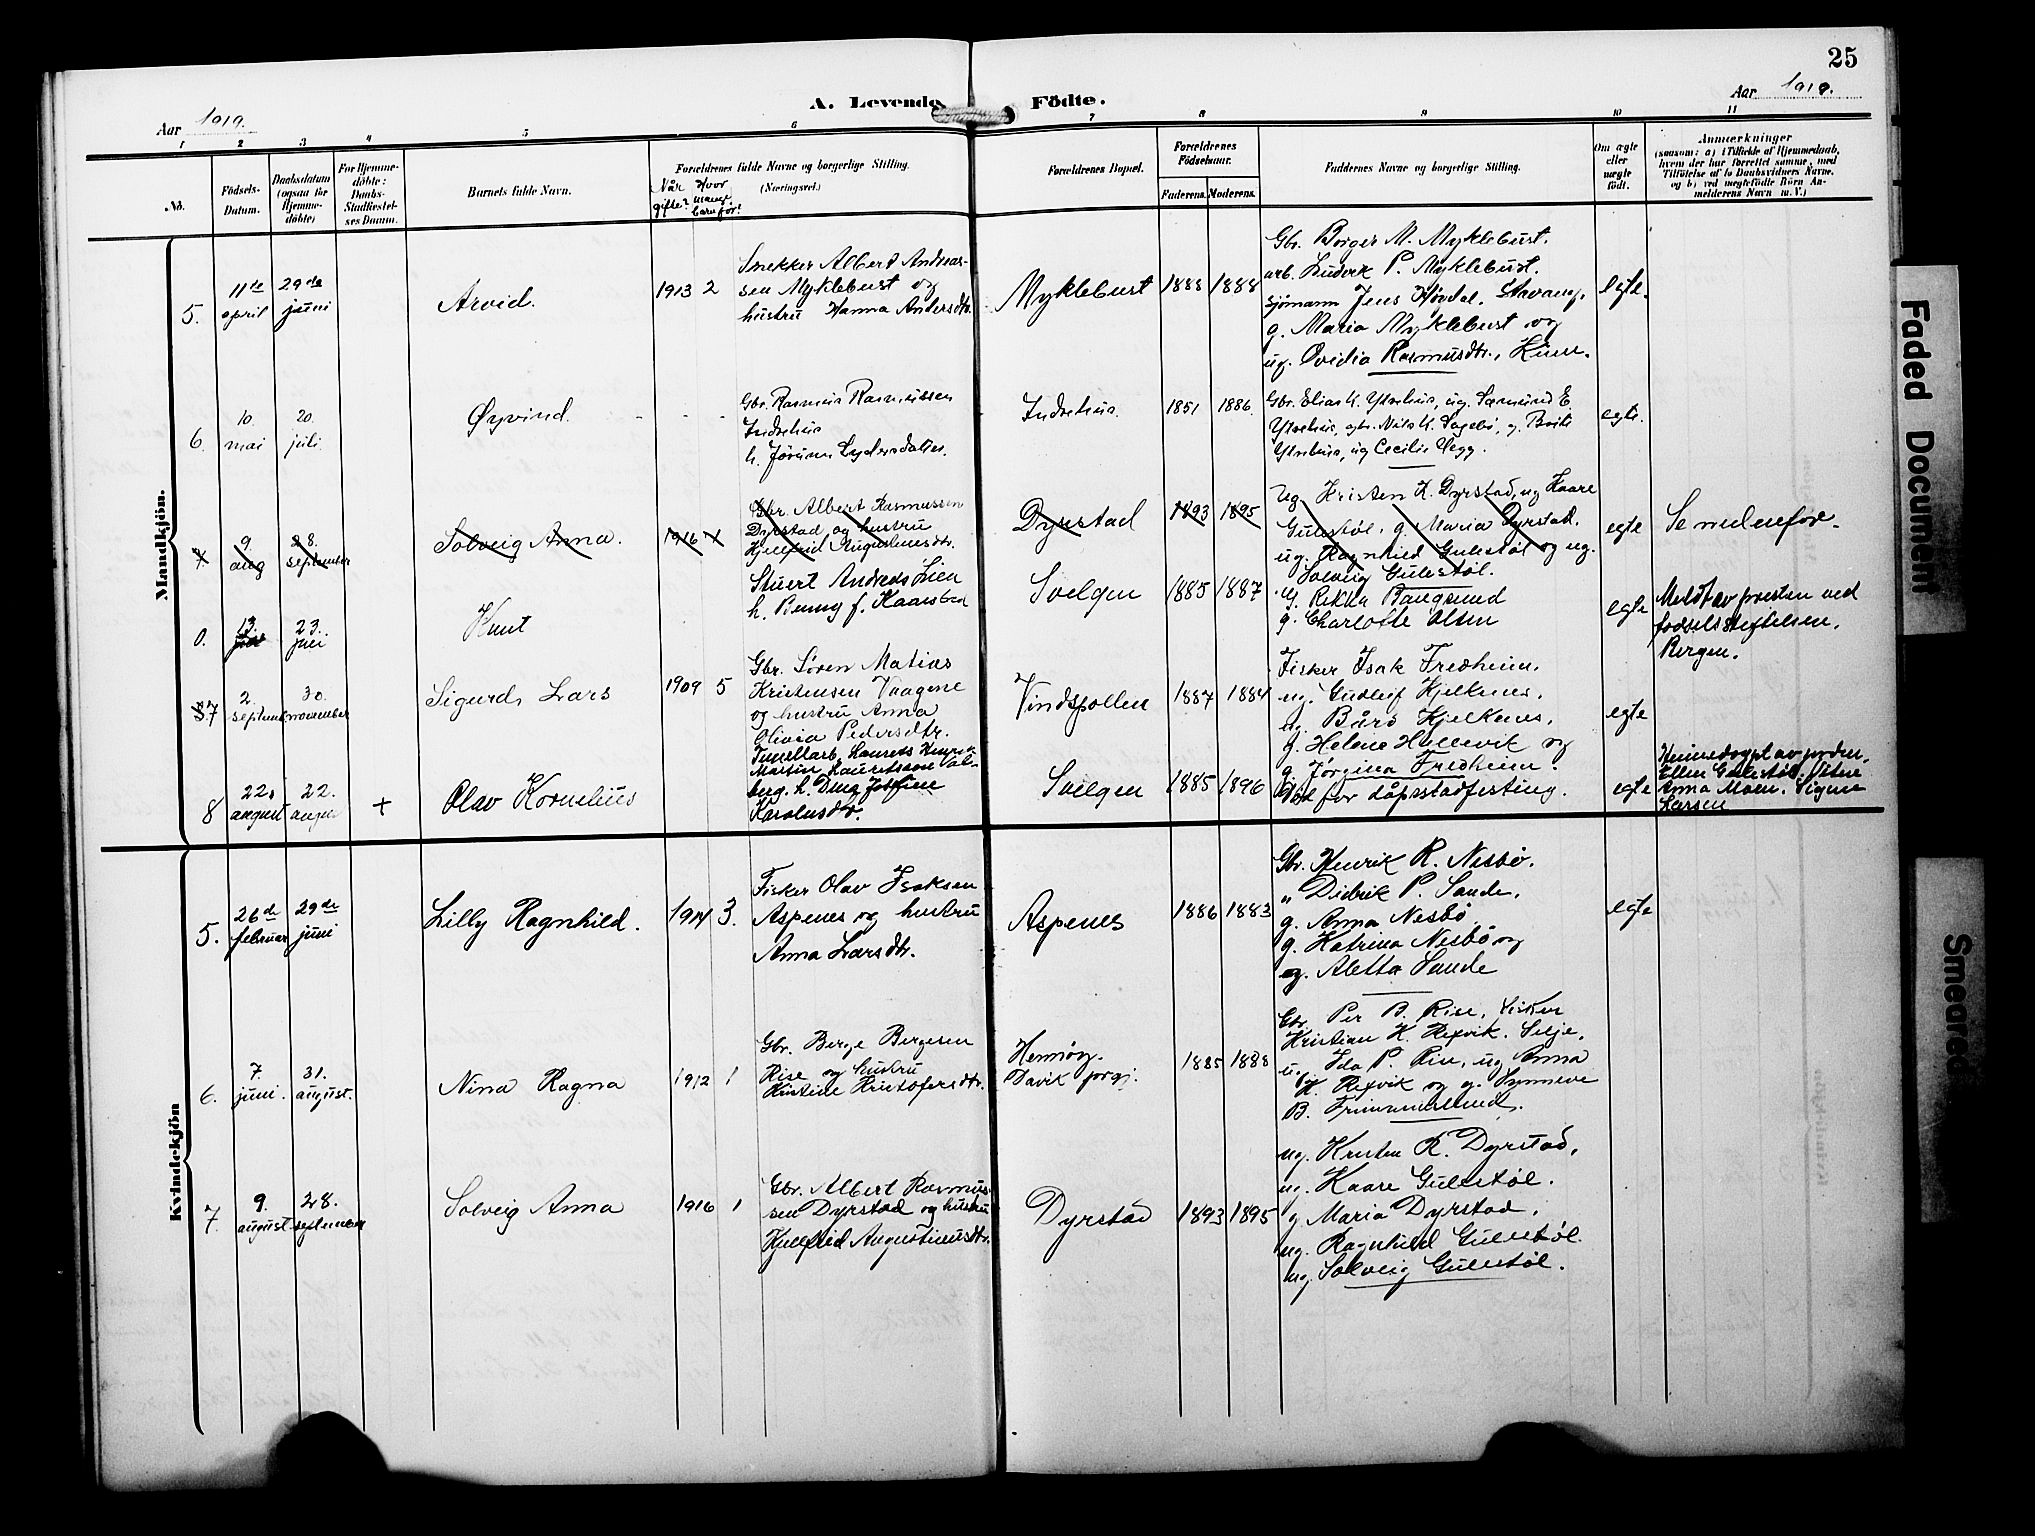 25
A. Levende Födte.
Aar 1919.
Aar 1919.
1 2 3 4 5 6 7 8 9 10 11
No.
Födsels-Datum.
Daabsdatum (ogsaa for Hjemmedöbte)
For Hjemmedöbte: Daabs-Stadfæstelses Datum.
Barnets fulde Navn.
Forældrenes fulde Navne og borgerlige Stilling.
(Næringsvei.)
Når gifte?
Hvor mange barn før?
Forældrenes Bopæl.
Forældrenes Födselsaar.
Faderens. Moderens.
Faddernes Navne og borgerlige Stilling.
Om ægte eller uægte födt.
Anmærkninger
(saasom: a) i Tilfælde af Hjemmedaab, hvem der har forrettet samme, med Tilföielse af to Daabsvidners Navne, og b) ved uægtefödte Börn Anmelderens Navn m. V.)
Mandkjön.
5.
11te april
29de juni
Arvid.
1913 2
Snekker Albert Andreas-
sen Myklebust og
hustru Hanna Andersdtr.
Myklebust
1888 1888
Gbr. Borger M. Myklebust.
arb. Ludvik P. Myklebust.
sjømann Jens Høydal, Stavang,
g. Maria Myklebust og
ug. Ovidia Rasmusdtr.,
egte.
6.
10. mai
20. juli
Øyvind.
- - -
Gbr. Rasmus Rasmussen
Indrehus
h. Jørune
Indrehus.
1851 1886.
Gbr. Elias K. Ytrehus, ug. Sæmund E.
Ytrehus, gbr. Nils K. Sagebø, g. Brite
Ytrehus, ug Cecilie
egte.
7.
9. aug
28. september
Solveig Anna.
1916 1
Gbr. Albert Rasmussen
Dyrstad og hustru
Hjelfrid Augustinusdtr.
Dyrstad
1893 1895
Ug Kristen K. Dyrstad, ug Kaare
Gulestøl, g. Maria Dyrstad.
ug. Ragnhild Gulestøl og ug.
Solveig Gulestøl.
egte
Se nedenfor.
0.
13. juni
23. juni
Knut
Stuert Andreas Lien
h. Benny f. Kaarstad
Svelgen
1885 1887
g. Rikka Baugsund
g. Charlotte Olsen
egte
Meldt av presten ved
fødselsstiftelsen,
Bergen.
7
2. september
30. november
Sigurd Lars
1909 5
Gbr. Søren Matias
Kristensen Vaagene
og hustru Anna
Olivia Pedersdtr.
Vindspollen
1887 1884
Fisker Isak Fredheim.
ug. Gudleif Hjelkenes,
ug. Bård Hjelkenes,
g. Helene Hellevik og
g. Jørgina Fredheim.
egte
8
22. august
22. august
+
Olav Kornelius
Tunellarb. Laurits
Martin Lauritssone Val-
berg. h. Dina Josefine
Karolusdtr.
Svelgen
1885 1896
Død før dåpsstadfesting.
egte
Heimedøypt av jordm.
Ellen Gulestøl. Vitne
Anna Moen. Signe
Larsen
Kvindekjön
5.
26de februar
29de juni
Lilly Ragnhild.
1914 3.
Fisker Olav Isaksen
Aspenes og hustru
Anna Larsdtr.
Aspenes
1886 1883
Gbr. Henrik R. Nesbø.
" Didrik P. Sande.
g. Anna Nesbø
g. Katrina Nesbø og
ug. Aletta Sande
egte
6.
7. juni.
31. august.
Nina Ragna
1912 1
Gbr. Berge Bergesen
Rise og hustru
Kristine Kristofersdtr.
Hennøy.
Davik prgj.
1885 1888
Gbr. Per B. Rise, fisker
Kristian K. Rexvik. Selje,
u. Ida P. Rise, ug Anna
K. Rexvik og g. Synneve
B. Frimannslund.
7.
9. august
28. september
Solveig Anna
1916 1
Gbr. Albert Rasmus-
sen Dyrstad og hustru
Hjelfrid Augustinusdtr.
Dyrstad
1893 1895
ug. Kristen R. Dyrstad,
ug. Kaare Gulestøl.
g Maria Dyrstad,
ug. Ragnhild Gulestøl
ug Solveig Gulestøl.
Faded Document
Smeared